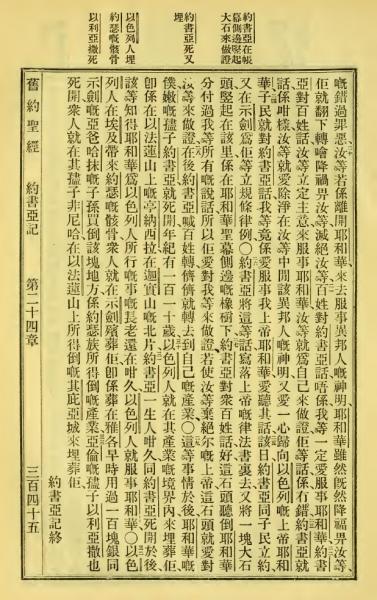 約書亞在帳
幕側邊竪起
大石來做證
約書亞死又
埋
以色列人埋
約瑟嘅骸骨
以利亞撒死
嘅錯過罪惡汝等若係離開耶和華來去服事異邦人嘅神明耶和華雖然旣然降福畀汝等
佢就翻下轉噲降禍畀汝等滅絕汝等百姓對約書亞話唔係我等一定愛服事耶和華約書
亞對百姓話汝等立定主意來服事耶和華汝等就爲自己來做證佢等話係冇錯約書亞就
話係咁樣汝等就愛除淨在汝等中間該異邦人嘅神明又愛一心歸向以色列嘅上帝耶和
華子民就對約書亞話我等竟係愛服事我上帝耶和華愛聽其話該日約書亞同子民立約
又在示劍爲佢等立規條律例○約書亞將這等話寫落上帝嘅律法書裏去又將一塊大石
頭竪起在該里係在耶和華聖幕側邊嘅橡樹下約書亞對衆百姓話好這石頭聽倒耶和華
分付過我等所有嘅說話所以佢愛對我等來做證若使汝等棄絕尔嘅上帝這石頭就愛對
汝等來做證在後約書亞喊百姓轉儕儕就轉去到自己嘅產業○這等事情於後耶和華嘅
僕嫩嘅孻子約書亞就死開年紀有一百一十歲以色列人就在其產業嘅境界內來埋葬佢
卽係在以法蓮山上嘅亭納西拉在迦實山嘅北片約書亞一生人咁久同約書亞死開於後
該等知得耶和華爲以色列人所行嘅事嘅長老還在咁久以色列人就服事耶和華○以色
列人在埃及帶來約瑟嘅骸骨衆人就在示劍殯葬佢卽係葬在雅各早時用過一百塊銀同
示劍嘅亞爸哈抹嘅子孫買倒該塊地方係約瑟族所得倒嘅產業亞倫嘅孻子以利亞撒也
死開衆人就在其孻子非尼哈在以法蓮山上所得倒嘅其庇亞城來埋葬佢
約書亞記終
舊約聖經 約書亞記 第二十四章 三百四十五